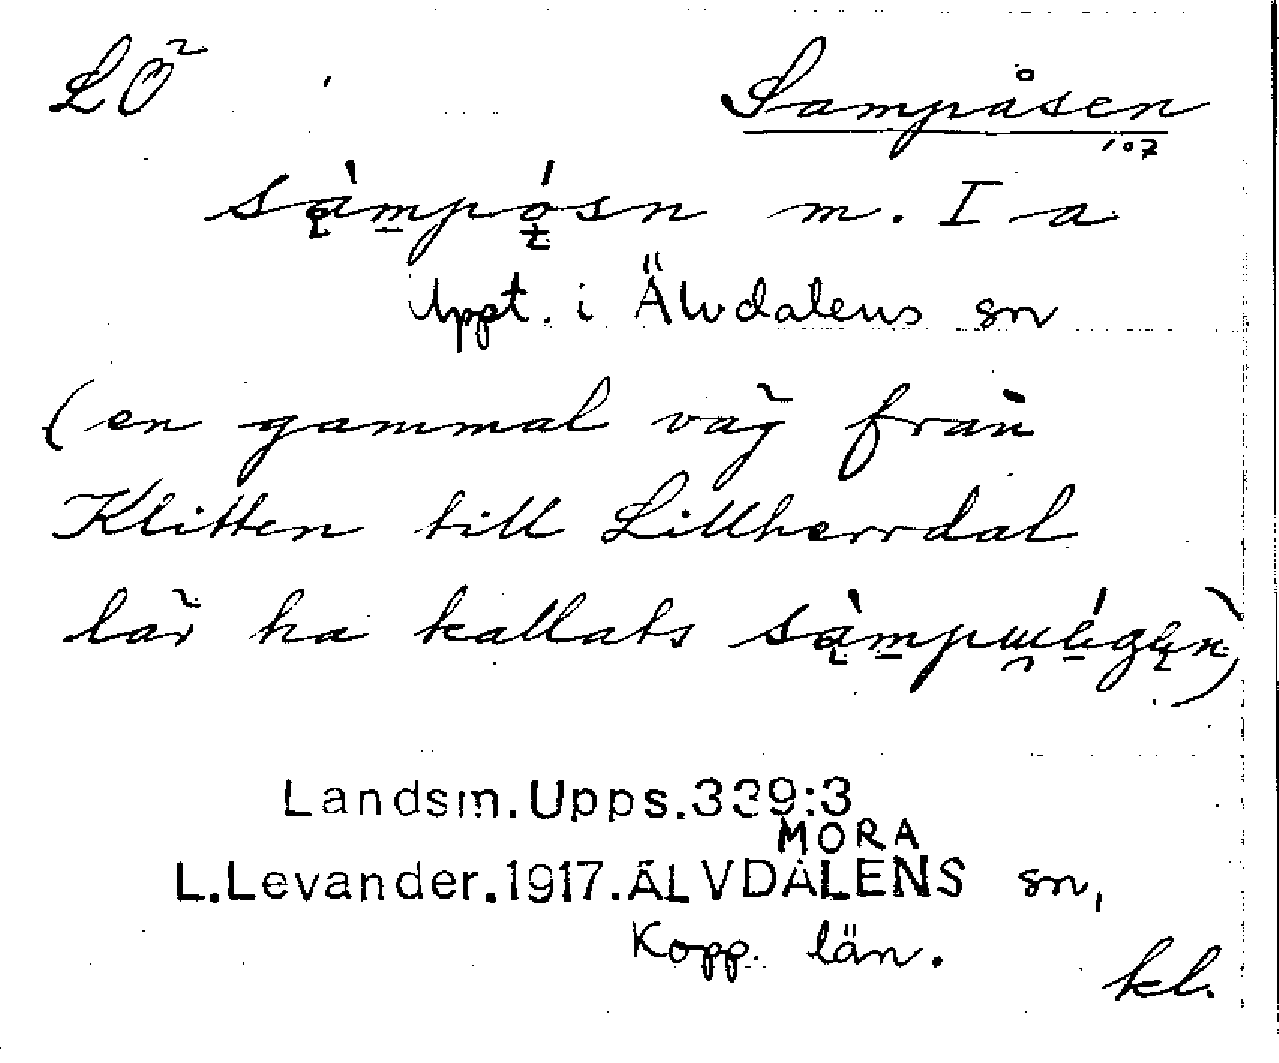 LÖ² Sampåsen
107
są̀m̱pǫ́sn m. I a
Uppt. i Älvdalens sn
(en gammal väg från
Klitten till Lillherrdal
lär ha kallats są̀m̱pɯ̯é̱gęn)
Landsm.Upps.339:3
MORA
L.Levander.1917.ÄLVDALENS sn,
Kopp. län.
kl.